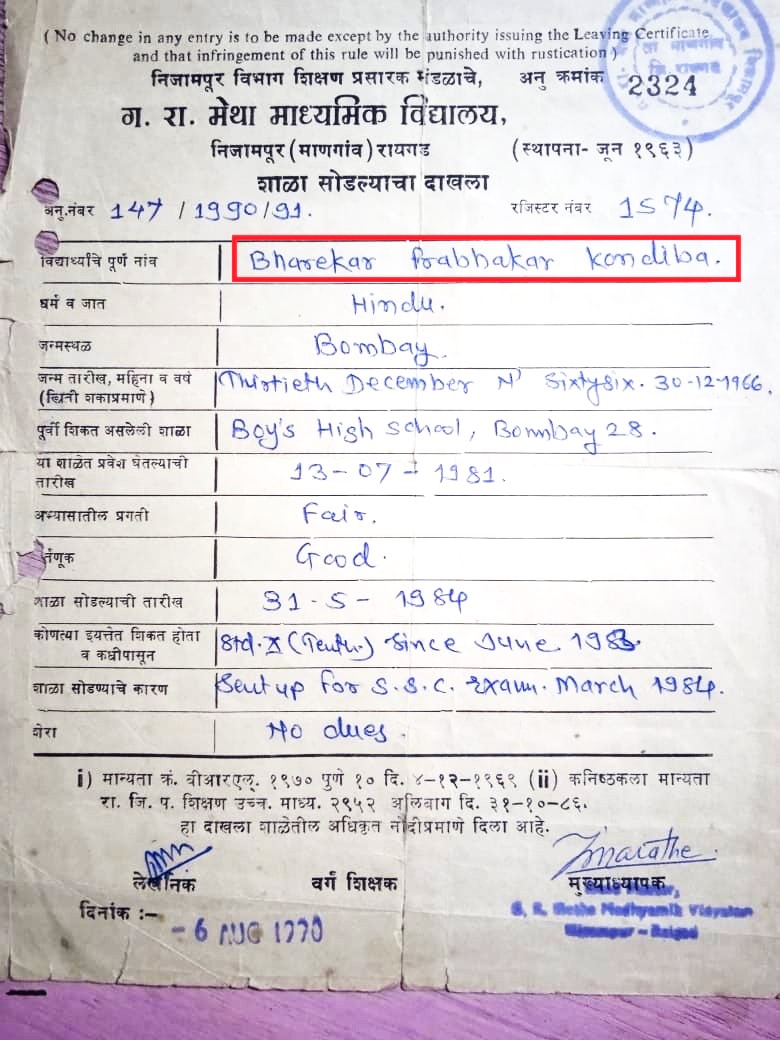 ( No change in any entry is to be made except by the authority issuing the Leaving Certificate
and that infringement of this rule will be punished with rustication )
निजामपूर विभाग शिक्षण प्रसारक मंडळाचे, अनु क्रमांक 2324
ग. रा. मेथा माध्यमिक विद्यालय,
निजामपूर (माणगांव) रायगड (स्थापना- जून १९६३)
शाळा सोडल्याचा दाखला
अनु.नंबर 147 / 1990/91. रजिस्टर नंबर 1574.
विद्यार्थ्याचे पूर्ण नांव Bharekar Prabhakar Kondiba.
धर्म व जात Hindu.
जन्मस्थळ Bombay.
जन्म तारीख, महिना व वर्ष Thirtieth December N' Sixtysix. 30-12-1966.
(ख्रिस्ती शकाप्रमाणे)
पूर्वी शिकत असलेली शाळा Boy's High School, Bombay 28.
या शाळेत प्रवेश घेतल्याची 13-07-1981.
तारीख
अभ्यासातील प्रगती Fair.
Good.
शाळा सोडल्याची तारीख 31-5-1984
कोणत्या इयत्तेत शिकत होता Std. X (Tenth.) Since June 1983.
व कधीपासून
शाळा सोडण्याचे कारण Sent up for S.S.C. Exam. March 1984.
शेरा No dues.
i) मान्यता क्रं. बीआरएल्. १९७० पुणे १० दि. ४-१२-१९६९ (ii) कनिष्ठकला मान्यता
रा. जि. प. शिक्षण उच्च. माध्य. २९५२ अलिबाग दि. ३१-१०-८६.
हा दाखला शाळेतील अधिकृत नोंदीप्रमाणे दिला आहे.
Marathe
लेखनिक वर्ग शिक्षक मुख्याध्यापक
दिनांक :- -6 AUG 1990
G. R. Metha Madhyamik Vidyalaya
Nizampur - Raigad